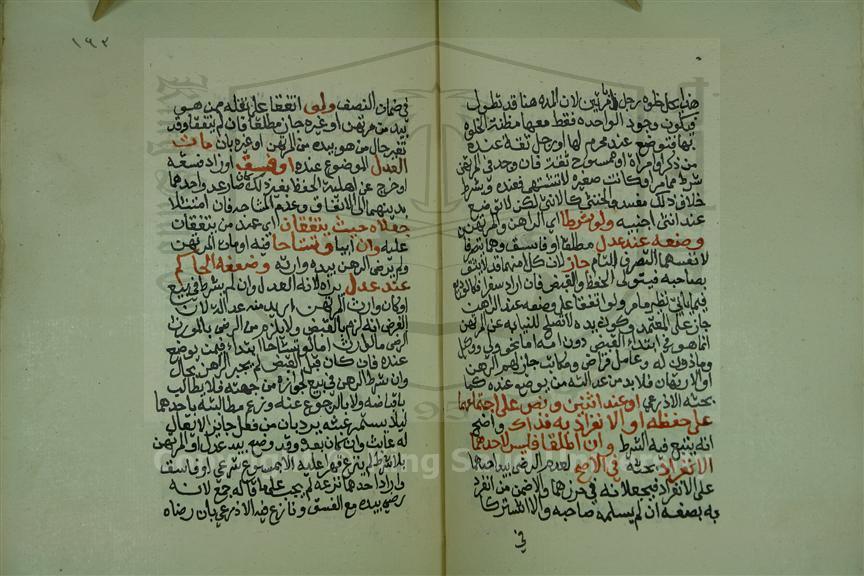 هذا بكل خلوه رجل بامرأتين لان المده هنا قد تطول
فيكون وجود الواحده فقط معها مظنة الخلوه
بها فتوضع عند محرم لها او رجل ثقة عنده
من ذكر او امراة او ممسوح ثقة فان وجد في المرتهن
شرط مما مر او كانت صغيره لا تشتهى فعنده وشرط
خلاف ذلك مفسد والخنثى كالانثى لكن لا توضع
عند انثى اجنبيه ولو شرطا اي الراهن والمرتهن
وضعه عند عدل مطلقا او فاسق وهما يتصرفان
لانفسهما التصرف التام جاز لان كل منهما قد لا يثق
بصاحبه فيتولى الحفظ والقبض فان اراد سفرا
فيما ياتي نظير ما مر ولو اتفقا على وضعه عند الراهن
جاز على المعتمد وكون يده لا تصلح للنيابه عن المرتهن
انما هو في ابتداء القبض دون دوامه اما نحو ولي ووكيل
وماذون له وعامل قراض ومكاتب جاز لهم الرهن
او الارتهان فلا بد من عدالة من يوضع عنده كما
بحثه الاذرعي او عند اثنين ونص على اجتماعهما
على حفظه او الانفراد به فذاك واضح
انه يتبع فيه الشرط وان اطلقا فليس لاحدهما
الانفراد بحفظه في الاصح لعدم الرضى بيد احدهما
على الانفراد فيجعلانه في حرز لهما والا ضمن من انفرد
به نصفه ان لم يسلمه صاحبه والا اشتركا
في
١٩٣
في ضمان النصف ولو اتفقا على نقله ممن هو
بيده من مرتهن او غيره جاز مطلقا فان لم يتفقا وقد
تغير حال من هو بيده من المرتهن او غيره بان مات
العدل الموضوع عنده او فسق او زاد فسقه
او خرج عن اهلية الحفظ بغير ذلك او صار عدو احدهما
بدينهما الى الاتفاق وعدم المشاحه فان امتثلا
جعلاه حيث يتفقان اي عند من يتفقان
عليه وان ابيا وتشاحا فيه او مات المرتهن
ولم يرض الراهن بيد وارثه وضعه الحاكم
عند عدل يراه لانه العدل وان لم يشرط في بيع
او كان وارث المرتهن ازيد منه عدالة لان
الفرض انه لزم بالقبض ولا يلزم من الرضى بالمورث
الرضى بالوارث اما لو تشاحا ابتداء فيمن يوضع
عنده فان كان قبل القبض لم يجبر الراهن بحال
وان شرط الرهن في بيع لجوازه من جهته فلا يطالب
باقباضه ولا بالرجوع عنه ونزع مطالبته باحدهما
ليلا يستمر عبثه يرد بان من فعل جائزا لا يقال
له عابث وان كان بعده وقد وضع بيد عدل او المرتهن
بلا شرط لم ينزع قهرا عليه الا بمسوغ شرعي او فاسق
واراد احدهما نزعه لم يجب على ما قاله جمع لانه
رضي بيده مع الفسق ونازع فيه الاذرعي بان رضاه